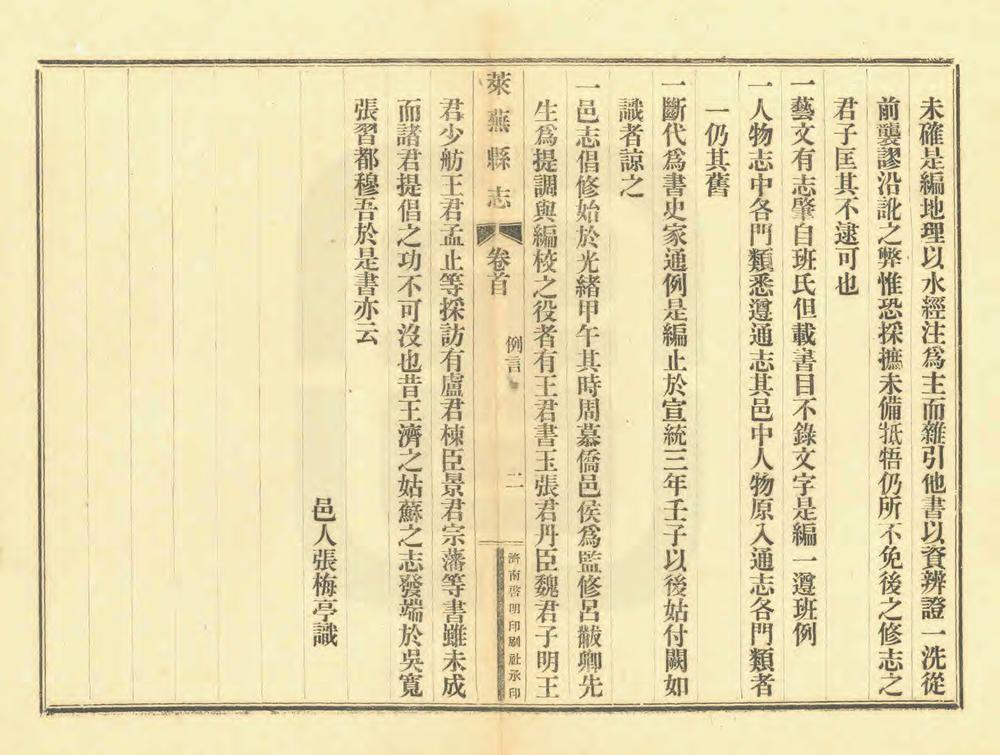 未確是編地理以水經注爲主而雜引他書以資辨證一洗從
前襲謬沿訛之弊惟恐採摭未備牴牾仍所不免後之修志之
君子匡其不逮可也
一藝文有志肇自班氏但載書目不錄文字是編一遵班例
一人物志中各門類悉遵通志其邑中人物原入通志各門類者
一仍其舊
一斷代爲書史家通例是編止於宣統三年壬子以後姑付闕如
識者諒之
一邑志倡修始於光緒甲午其時周慕僑邑侯爲監修呂黻卿先
生爲提調與編校之役者有王君書玉張君丹臣魏君子明王
萊蕪縣志
卷首
例言
二
濟南啓明印刷社承印
君少舫王君孟止等採訪有盧君棟臣景君宗藩等書雖未成
而諸君提倡之功不可沒也昔王濟之姑蘇之志發端於吳寬
張習都穆吾於是書亦云
邑人張梅亭識